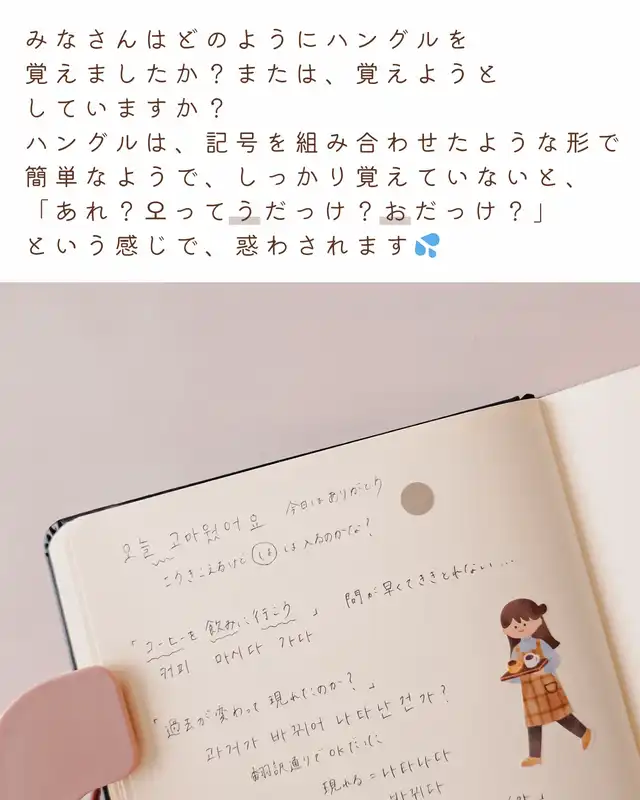 みなさんはどのようにハングルを
覚えましたか？または、覚えようと
していますか？
ハングルは、記号を組み合わせたような形で
簡単なようで、しっかり覚えていないと、
「あれ？오ってうだっけ？おだっけ？」
という感じで、惑わされます💦
오늘 고마웠어요 今日はありがとう
こうきこえるけど は は入るのかな？
「コーヒーを飲みに行こう」 間が早くてききとれない…
커피 마시다 가다
「過去が変わって現れたのか？」
과거가 바뀌어 나타난 건가?
翻訳通りでOKだけど
現れる = 나타나다
바뀌다